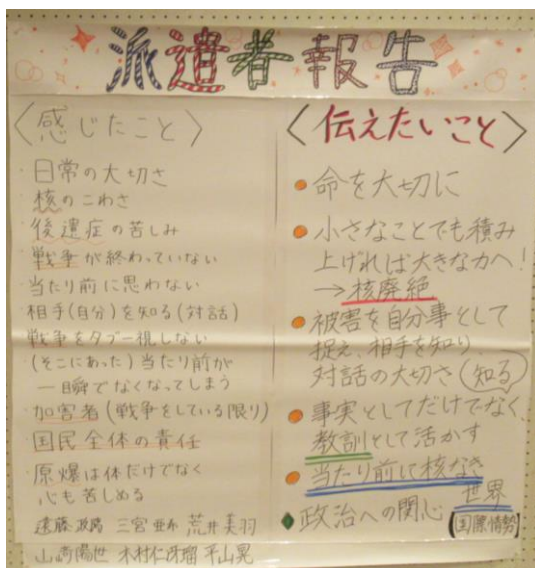 派遣者報告
〈感じたこと〉
・日常の大切さ
・核のこわさ
・後遺症の苦しみ
・戦争が終わっていない
・当たり前に思わない
・相手(自分)を知る(対話)
・戦争をタブー視しない
・(そこにあった)当たり前が
一瞬でなくなってしまう
・加害者(戦争をしている限り)
・国民全体の責任
・原爆は体だけでなく
心も苦しめる
遠藤 三宮 荒井美羽
山崎陽世 木村仁冴瑠 平山晃
〈伝えたいこと〉
●命を大切に
●小さなことでも積み
上げれば大きな力へ!
→核廃絶
●被害を自分事として
捉え、相手を知り、
対話の大切さ(知る)
●事実としてだけでなく、
教訓として活かす
●当たり前に核なき
世界
◆政治への関心[国際情勢]